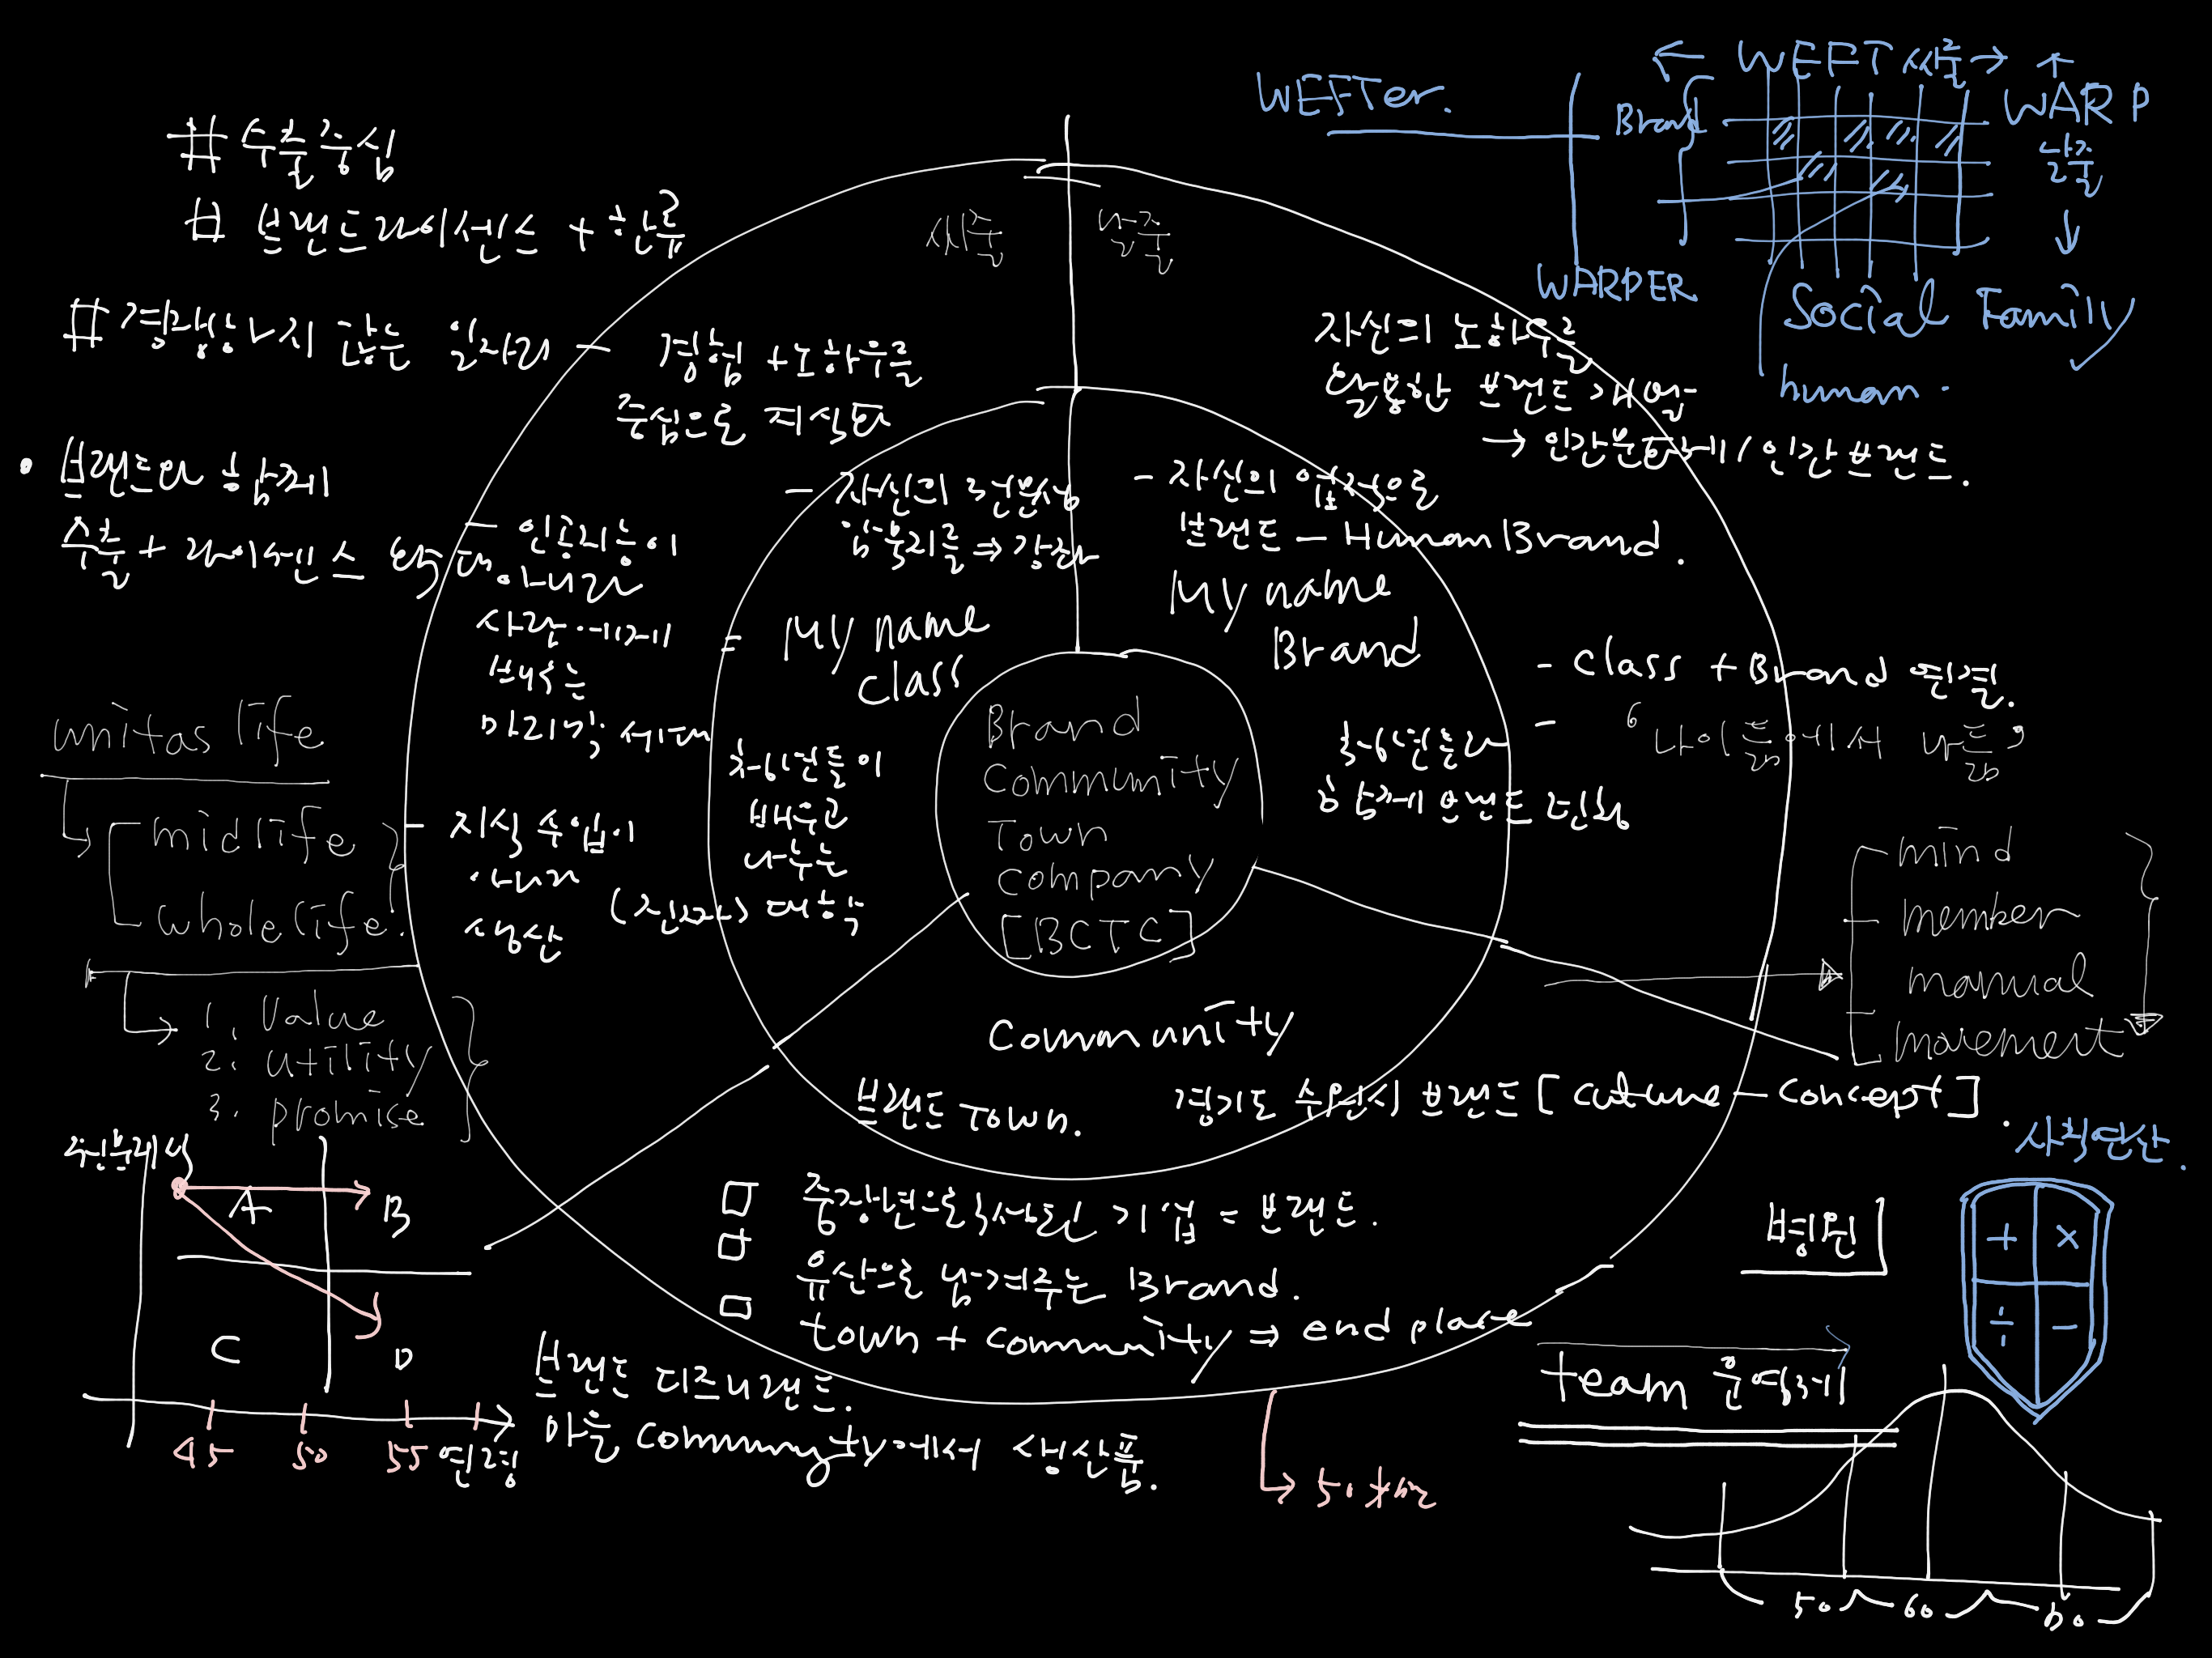 # 수출중심
# 브랜드라이센스 + 한류
# 경쟁상 넣지 않는 일자리
• 브랜드와 함께
수출 + 라이센스 확대
unitas life
midlife
wholelife.
1. Value
2. utility
3. promise
A
B
C
D
45 50 55 연령
씨줄
날줄
- 경험 + 노하우를
중심으로 지식화
- 인공지능이
아니라
사람에게
배우는
마지막 세대
- 지식 수입이
아니라
생산
- 자신의 전반생
암묵지를 ⇒ 강화
= My name
class
학생들이
배우고
나누는
(진짜) 대학
자신의 노하우를
활용한 브랜드 개발
→ 인간문화재 / 인간 브랜드.
- 자신의 업적으로
브랜드 - Human Brand.
My name
Brand
- class + Brand 연결.
- '나이듦에서 나듦'
함께 브랜드 런칭
Brand
Community
Town
Company
[BCTC]
Community
브랜드 Town. 경기도 수원시 브랜드 [culture - concept]
□ 중장년으로 구성된 기업 = 브랜드.
□ 유산으로 남겨주는 Brand.
□ town + community ⇒ end place
브랜드 디즈니랜드.
마을 community에서 생산품.
→ 50
WEFTer.
WARPER
← WEFT 씨줄 →
↑
WARP
날줄
↓
Brand
Social Family
human.
mind
member
manual
movement
사칙연산.
+ ×
÷ -
병원
team 운영체계
50 60